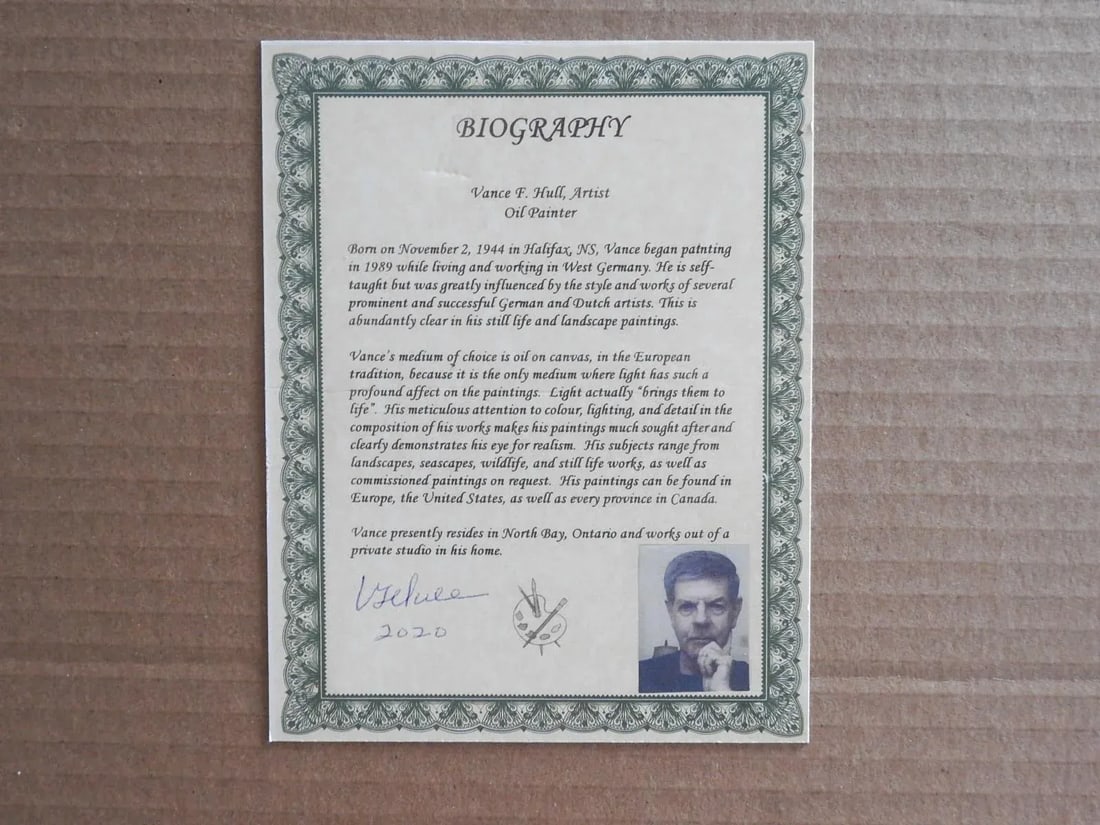 BIOGRAPHY
Vance F. Hull, Artist
Oil Painter
Born on November 2, 1944 in Halifax, NS, Vance began painting
in 1989 while living and working in West Germany. He is self-
taught but was greatly influenced by the style and works of several
prominent and successful German and Dutch artists. This is
abundantly clear in his still life and landscape paintings.
Vance's medium of choice is oil on canvas, in the European
tradition, because it is the only medium where light has such a
profound affect on the paintings. Light actually "brings them to
life". His meticulous attention to colour, lighting, and detail in the
composition of his works makes his paintings much sought after and
clearly demonstrates his eye for realism. His subjects range from
landscapes, seascapes, wildlife, and still life works, as well as
commissioned paintings on request. His paintings can be found in
Europe, the United States, as well as every province in Canada.
Vance presently resides in North Bay, Ontario and works out of a
private studio in his home.
2020